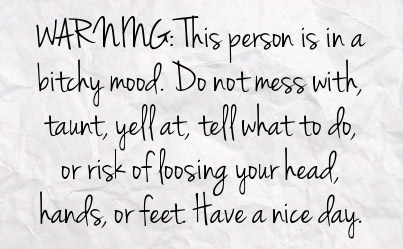 WARNING: This person is in a
bitchy mood. Do not mess with,
taunt, yell at, tell what to do,
or risk of loosing your head,
hands, or feet. Have a nice day.